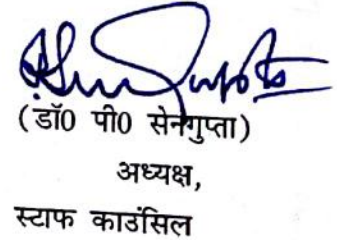 (डॉ0 पी0 सेनगुप्ता)
अध्यक्ष,
स्टाफ काउंसिल